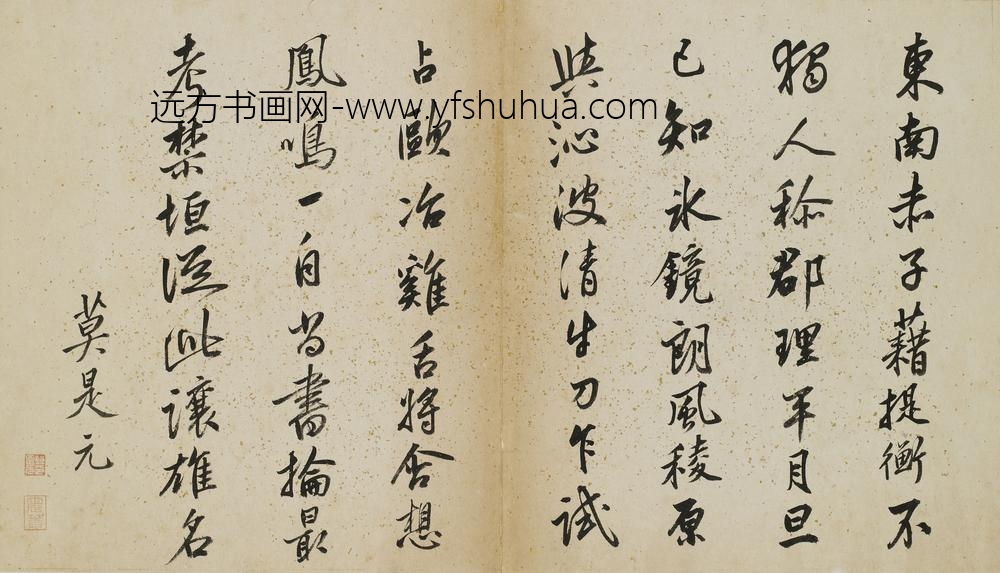 東南赤子藉提衡不
獨人稱郡理平月旦
已知氷鏡朗風稜原
與沁波清牛刀乍試
占歐冶雞舌將含想
鳳鳴一自尚書掄最
考禁垣從此讓雄名
莫是元
远方书画网-www.yfshuhua.com